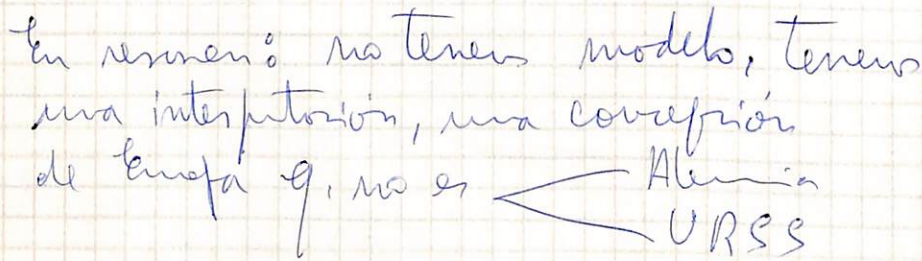 En resumen: no tenemos modelo, tenemos
una interpretación, una concepción
de Europa q. no es Alemania
URSS